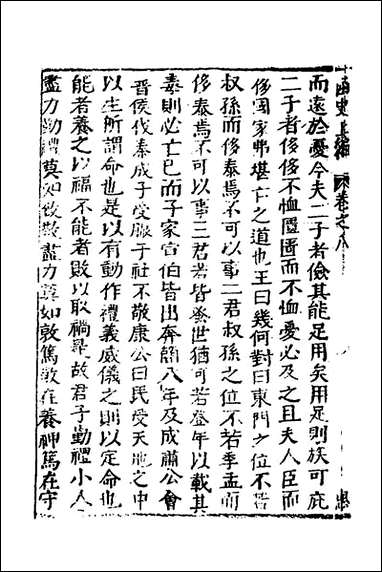 函史上編 卷之八
而遠於憂今夫二子者儉其能足用矣用足則族可庇
二子者侈侈不恤匱匱而不恤憂必及之且夫人臣而
侈国家弗堪亡之道也王曰幾何對曰東門之位不若
叔孫而侈泰焉不可以事二君叔孫之位不若季孟而
侈泰焉不可以事三君若皆蚤世猶可若登年以載其
毒則必亡已而子家宣伯皆出奔簡八年及成肅公會
晉侯伐秦成子受脤于社不敬康公曰民受天地之中
以生所謂命也是以有動作禮義威儀之則以定命也
能者養之以福不能者敗以取禍是故君子勤禮小人
盡力勤禮莫如致敬盡力莫如敦篤敬在養神篤在守